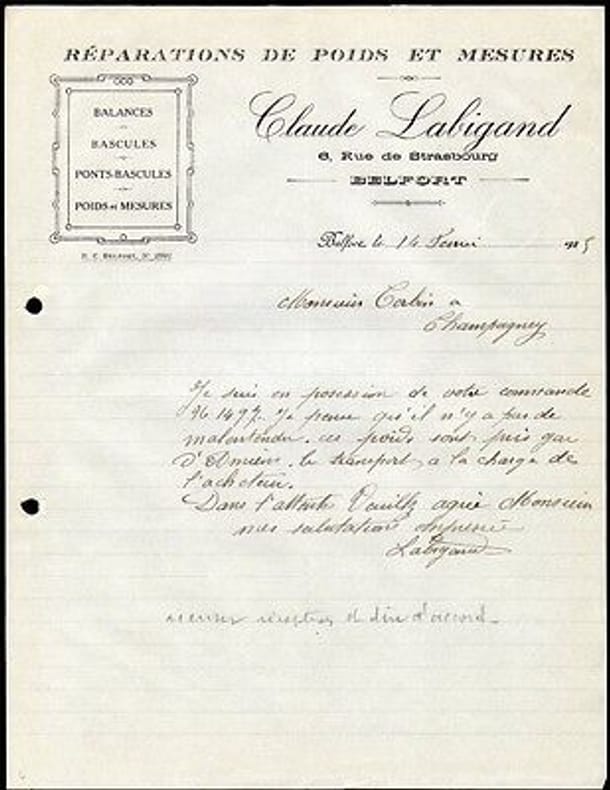 RÉPARATIONS DE POIDS ET MESURES
BALANCES
BASCULES
PONTS-BASCULES
POIDS et MESURES
Claude Labigand
6, Rue de Strasbourg
BELFORT
Belfort le 14
Monsieur Corbin a
Champagney
Je suis en posession de votre commande
1497. Je pense qu'il n'y a pas de
malentendu. ces poids sont pris gar
le transport a la charge de
l'acheteur.
Dans l'attente Veuillz agrée Monsieur
mes salutations
Labigand
réception et dire d'accord.